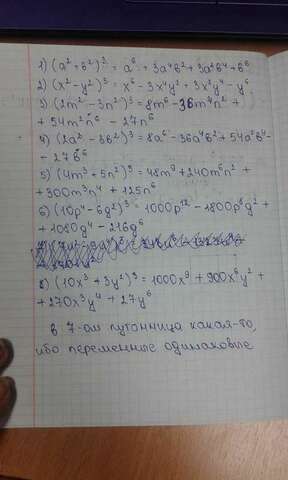 1) (a²+b²)³ = a⁶ + 3a⁴b² + 3a²b⁴ + b⁶
2) (x²-y²)³ = x⁶ - 3x⁴y² + 3x²y⁴ - y⁶
3) (2m² - 3n²)³ = 8m⁶ - 36m⁴n² +
+ 54m²n⁶ - 27n⁶
4) (2a² - 3b²)³ = 8a⁶ - 36a⁴b² + 54a²b⁴ -
- 27b⁶
5) (4m³ + 5n²)³ = 48m⁹ + 240m⁶n² +
+ 300m³n⁴ + 125n⁶
6) (10p⁴ - 6g²)³ = 1000p¹² - 1800p⁸g² +
+ 1080g⁴ - 216g⁶
8) (10x³ + 3y²)³ = 1000x⁹ + 900x⁶y² +
+ 270x³y⁴ + 27y⁶
в 7-ом путонница какая-то,
ибо переменные одинаковые